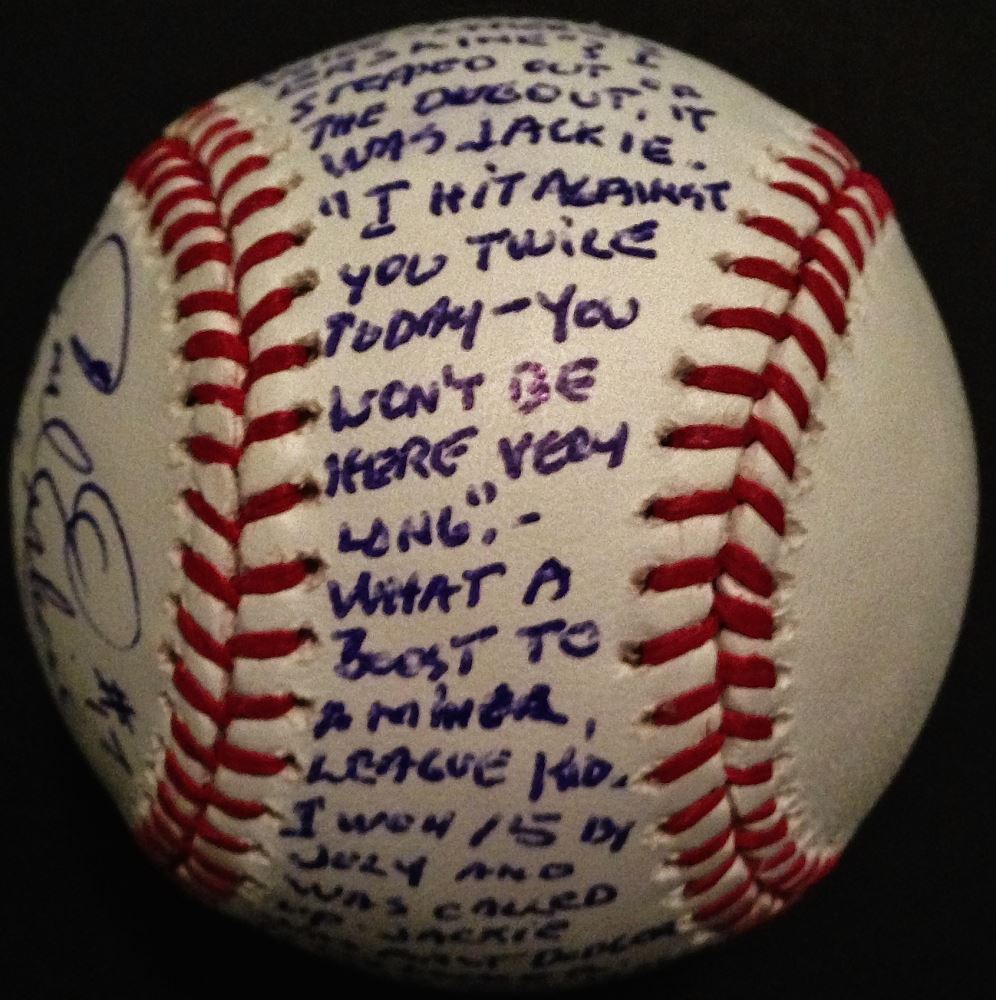 ERSKINE"? I
STEPPED OUT OF
THE DUGOUT, IT
WAS JACKIE.
"I HIT AGAINST
YOU TWICE
TODAY - YOU
WON'T BE
HERE VERY
LONG". -
WHAT A
BOOST TO
A MINOR
LEAGUE KID.
I WON 15 BY
JULY AND
WAS CALLED
UP. JACKIE
WAS FIRST DODGER
Carl Erskine
#17